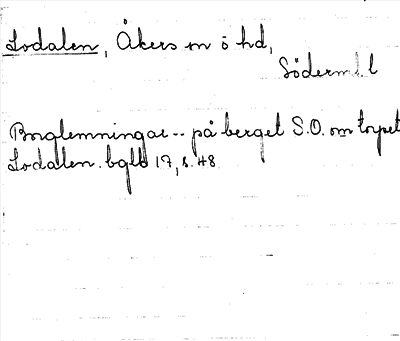 Lodalen, Åkers sn ö hd,
Söderm l l
Borglemningar -- på berget S.O. om torpet
Lodalen. bgld 17, s. 48